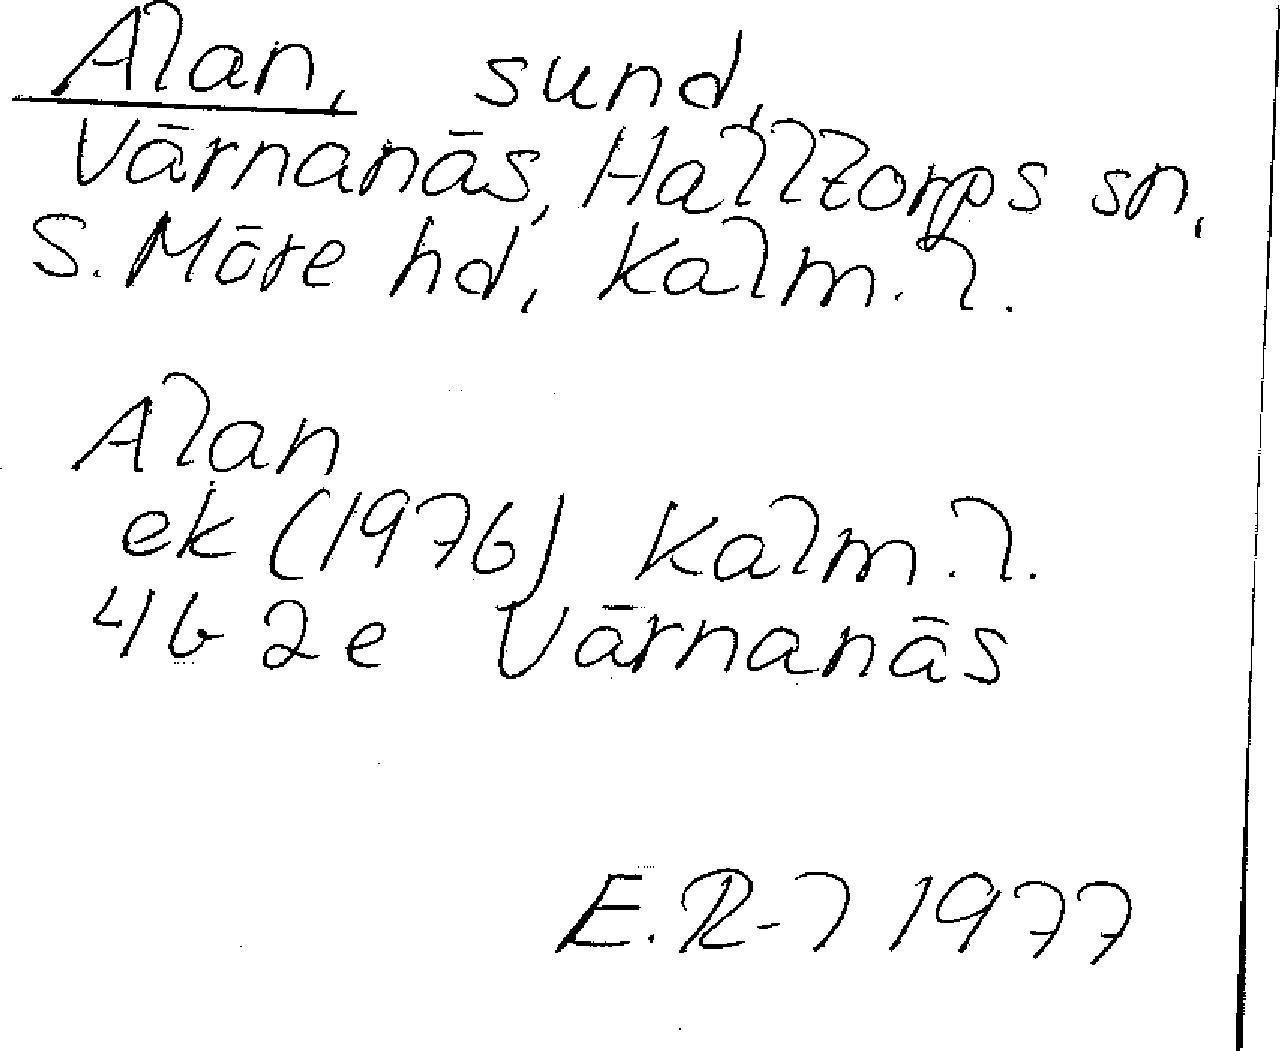 Alan, sund,
Värnanäs, Halltorps sn,
S. Möre hd, Kalm. l.
Alan
ek (1976) Kalm. l.
4G 2e Värnanäs
E. R-l 1977